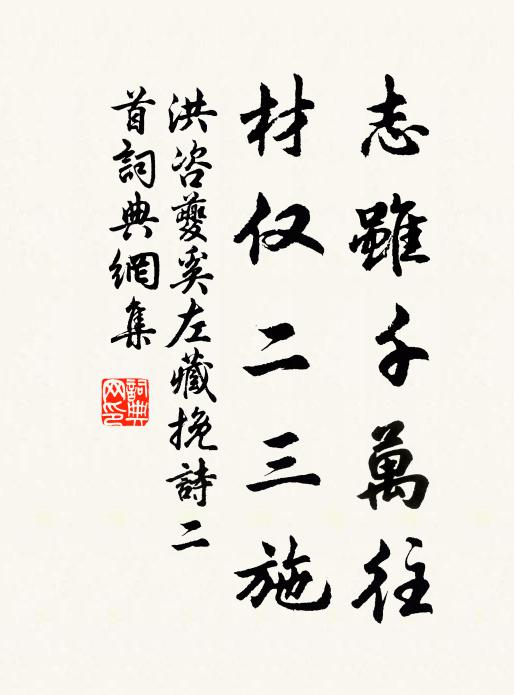 志雖千萬往
材仅二三施
洪咨夔奚左藏挽詩二
首詞典網集
詞典網印